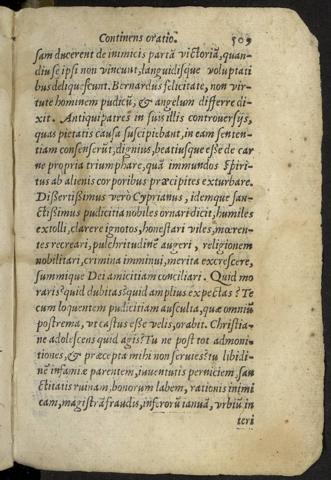 Continens oratio. 509
sam ducerent de inimicis partā victoriā, quan-
diu se ipsi non vincunt, languidisque voluptati
bus deliquescunt. Bernardus felicitate, non vir-
tute hominem pudicū, & angelum differre di-
xit. Antiqui patres in suis illis controversijs,
quas pietatis causa suscipiebant, in eam senten-
tiam consenserūt, dignius, beatiusque esse de car-
ne propria triumphare, quā immundos Spiri-
tus ab alienis corporibus præcipites exturbare.
Dissertissimus verò Cyprianus, idemque san-
ctissimus pudicitia nobiles ornari dicit, humiles
extolli, clarere ignotos, honestari viles, mœren-
tes recreari, pulchritudinē augeri, religionem
nobilitari, crimina imminui, merita excrescere,
summique Dei amicitiam conciliari. Quid mo
raris? quid dubitas? quid amplius expectas? Te
cum loquentem pudicitiam ausculta, quæ omniū
postrema, vt castus esse velis, orabit. Christia-
ne adolescens quid agis? Tu ne post tot admoni-
tiones, & præcepta mihi non servies? tu libidi-
nē infamiæ parentem, iuventutis perniciem, san
ctitatis ruinam, bonorum labem, rationis inimi
cam, magistrā fraudis, inferorū ianuā, vrbiū in
teri